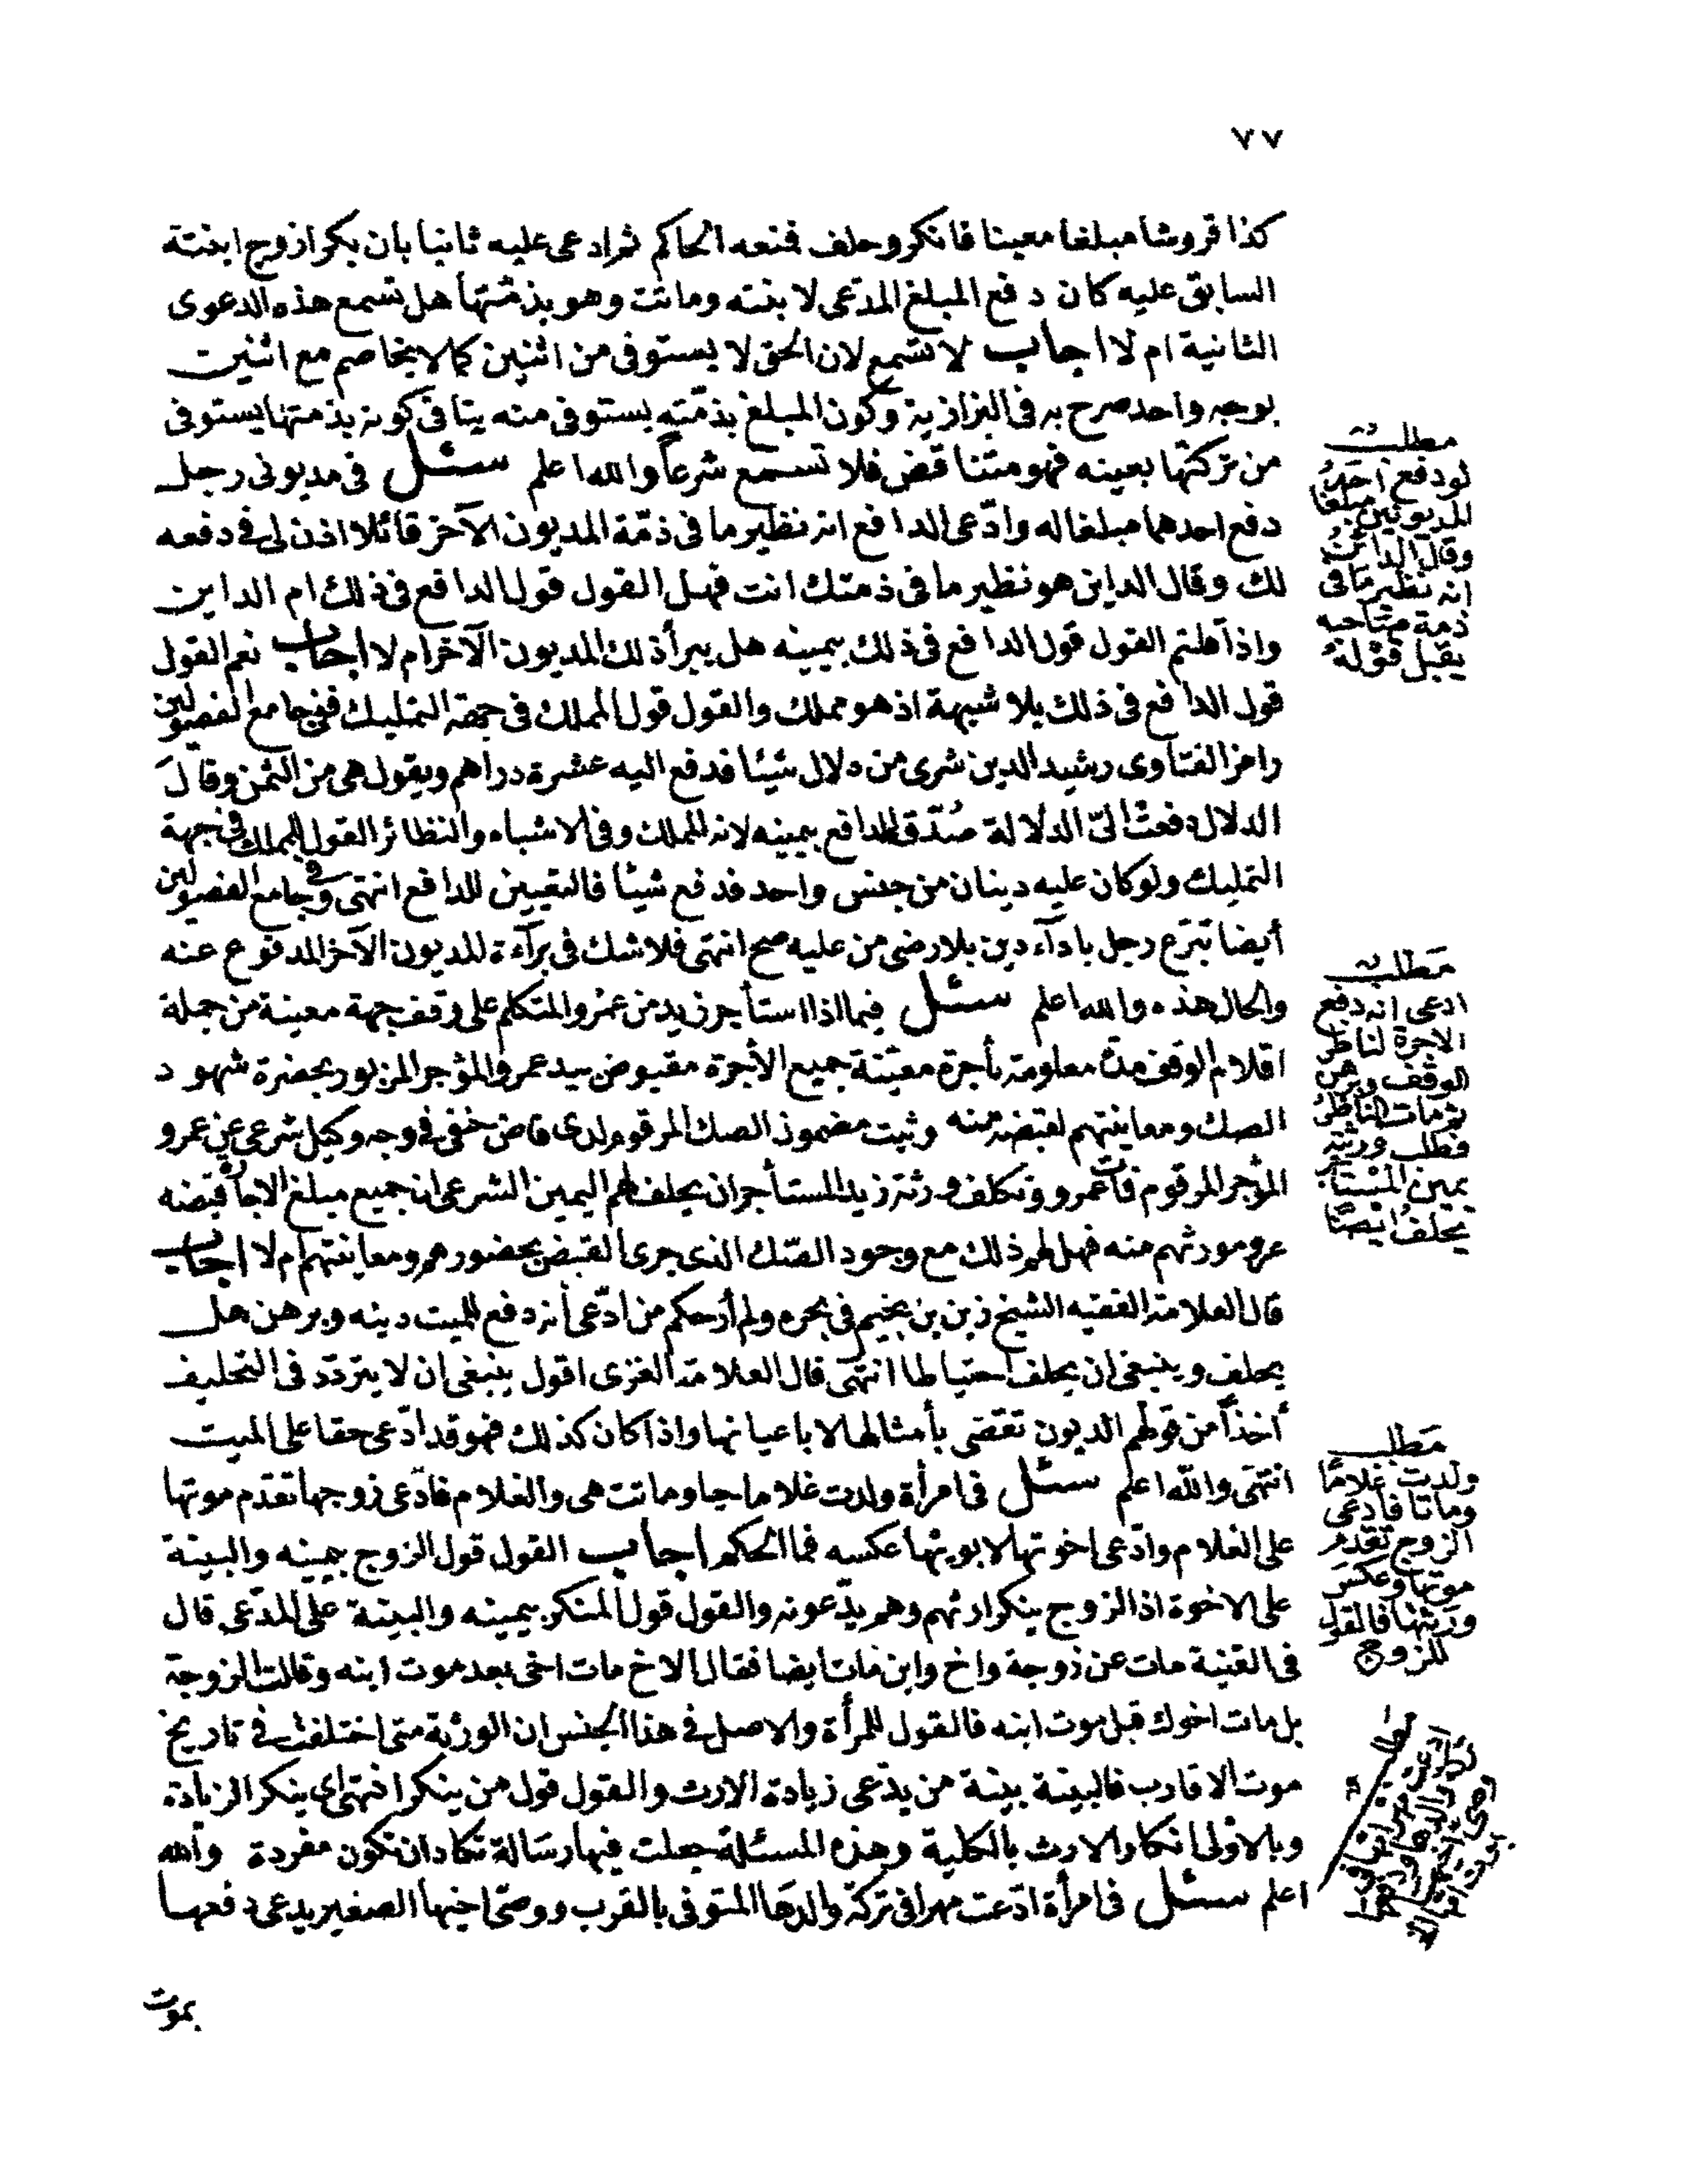 ٧٧
كذا قروشا مبلغا معينا فانكر وحلف فمنعه الحاكم ثم ادعى عليه ثانيا بان بكرا زوج ابنتة
السابق عليه كان دفع المبلغ المدّعى لابنته وماتت وهو بذمّتها هل تسمع هذه الدعوى
الثانية ام لا اجاب لا تسمع لان الحق لا يستوفى من اثنين كما لا يخاصم مع اثنين
بوجه واحد صرح به فى البزازية وكون المبلغ بذمّته يستوفى منه ينافى كونه بذمتها يستوفى
من تركتها بعينه فهو متناقض فلا تسمع شرعاً والله اعلم سئل فى مديونى رجل
دفع احدهما مبلغا له وادّعى الدافع انه نظير ما فى ذمّة المديون الآخر قائلا اذن لى فى دفعه
لك وقال الداين هو نظير ما فى ذمتك انت فهل القول قول الدافع فى ذلك ام الداين
واذا قلتم القول قول الدافع فى ذلك بيمينه هل يبرأ ذلك المديون الآخر ام لا اجاب نعم القول
قول الدافع فى ذلك بلا شبهة اذ هو مملك والقول قول المملك فى جهة التمليك ففى جامع الفصولين
رامز الفتاوى رشيد الدين شرى من دلال شيئا فدفع اليه عشرة دراهم ويقول هى من الثمن وقال
الدلال دفعت الىّ الدلالة صُدّق الدافع بيمينه لانه المملك وفى الاشباه والنظائر القول للمملك فى جهة
التمليك ولو كان عليه دينان من جنس واحد فدفع شيئا فالتعيين للدافع انتهى وفى جامع الفصولين
أيضا تبرّع رجل باداء دين بلا رضى من عليه صح انتهى فلا شك فى براءة المديون الآخر المدفوع عنه
والحال هذه والله اعلم سئل فيما اذا استأجر زيد من عمرو المتكلم على وقف جهة معينة من جملة
اقلام الوقف مدة معلومة بأجرة معيّنة جميع الأجرة مقبوض بيد عمرو المؤجر المزبور بحضرة شهود
الصك ومعاينتهم لقبضه منه وثبت مضمون الصك المرقوم لدى قاض حنفى فى وجه وكيل شرعى عن عمرو
المؤجر المرقوم فمات عمرو وتكلف ورثته زيد المستأجر ان يحلف لهم اليمين الشرعى ان جميع مبلغ الاجارة قبضه
عمرو مورثهم منه فهل لهم ذلك مع وجود الصّك الذى جرى القبض بحضورهم ومعاينتهم ام لا اجاب
قال العلامة الفقيه الشيخ زين بن نجيم فى بحره ولم أر حكم من ادّعى أنه دفع للميت دينه وبرهن هل
يحلف وينبغى ان يحلف احتياطا انتهى قال العلامة الغزى اقول ينبغى ان لا يتردّد فى التحليف
أخذاً من قولهم الديون تقضى بأمثالها لا باعيانها واذا كان كذلك فهو قد ادّعى حقا على الميت
انتهى والله اعلم سئل فى امرأة ولدت غلاما حيا وماتت هى والغلام فادّعى زوجها تقدم موتها
على الغلام وادّعى اخوتها لابويها عكسه فما الحكم اجاب القول قول الزوج بيمينه والبينة
على الاخوة اذ الزوج ينكر ارثهم وهم يدّعونه والقول قول المنكر بيمينه والبينة على المدّعى قال
فى القنية مات عن زوجة واخ وابن مات ايضا فقال الاخ مات اخى بعد موت ابنه وقالت الزوجة
بل مات اخوك قبل موت ابنه فالقول للمرأة والاصل فى هذا الجنس ان الورثة متى اختلفت فى تاريخ
موت الاقارب فالبينة بينة من يدّعى زيادة الارث والقول قول من ينكر انتهى اى ينكر الزيادة
وبالاولى انكار الارث بالكلية وهذه المسئلة جعلت فيها رسالة تكاد ان تكون مفردة والله
اعلم سئل فى امرأة ادّعت مهرا فى تركة والدها المتوفى بالقرب ووصى اخيها الصغير يدعى دفعها
بموت
مطلب
لو دفع احد
المديونين مبلغا
وقال الدائن
انه نظير ما فى
ذمة صاحبه
يقبل قوله
مطلب
ادعى انه دفع
الاجرة لناظر
الوقف وبرهن
ثم مات الناظر
فطلب ورثته
يمين المستأجر
يحلف ايضا
مطلب
ولدت غلامًا
وماتا فادعى
الزوج تقدم
موتها وعكس
ورثتها فالقول
للزوج